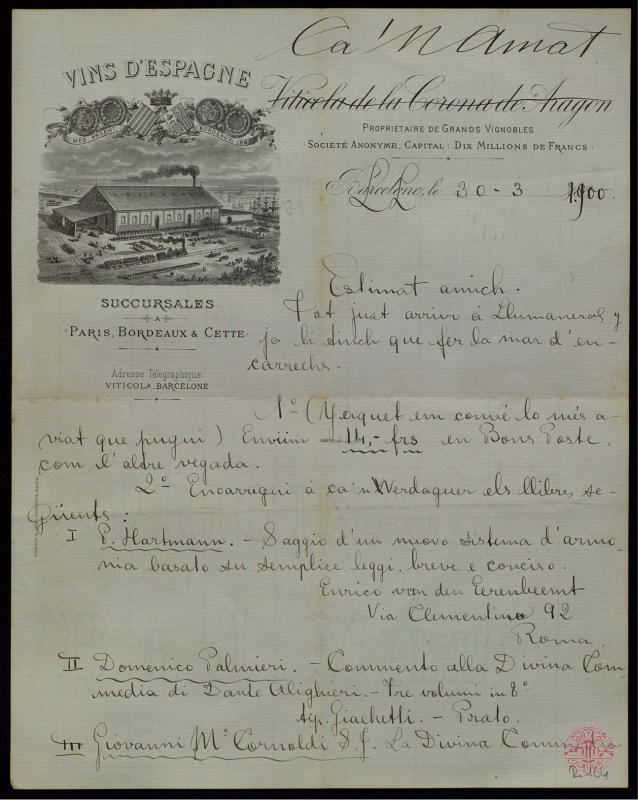 Ca'N Amat
VINS D'ESPAGNE
Viticola de la Corona de Aragon
PROPRIÉTAIRE DE GRANDS VIGNOBLES
SOCIÉTÉ ANONYME, CAPITAL: DIX MILLIONS DE FRANCS
MED. ARGENT
BORDEAUX
Barcelone, le 30 - 3 1900
SUCCURSALES
A
PARIS, BORDEAUX & CETTE
Adresse Télégraphique
VITICOLA, BARCELONE
Estimat amich.
Tot just arrivo á Llumaneras y
ja li tinch que fer la mar d'en-
carrechs.
1º (Y aquet em convé lo més a-
viat que pugui) Enviim 14,- frs en Bons Poste,
com l'altre vegada.
2º Encarregui á ca'n Werdaguer els llibres se-
güents:
I P. Hartmann. - Saggio d'un nuovo sistema d'armo-
nia basato su semplice leggi, breve e conciso.
Enrico van den Eerenbeemt
Via Clementino 92
Roma
II Domenico Palmieri. - Commento alla Divina Com-
media di Dante Alighieri. - Tre volumi in 8º
tip. Giachetti. - Prato.
III Giovanni Mª Cornoldi S.J. La Divina Commedia